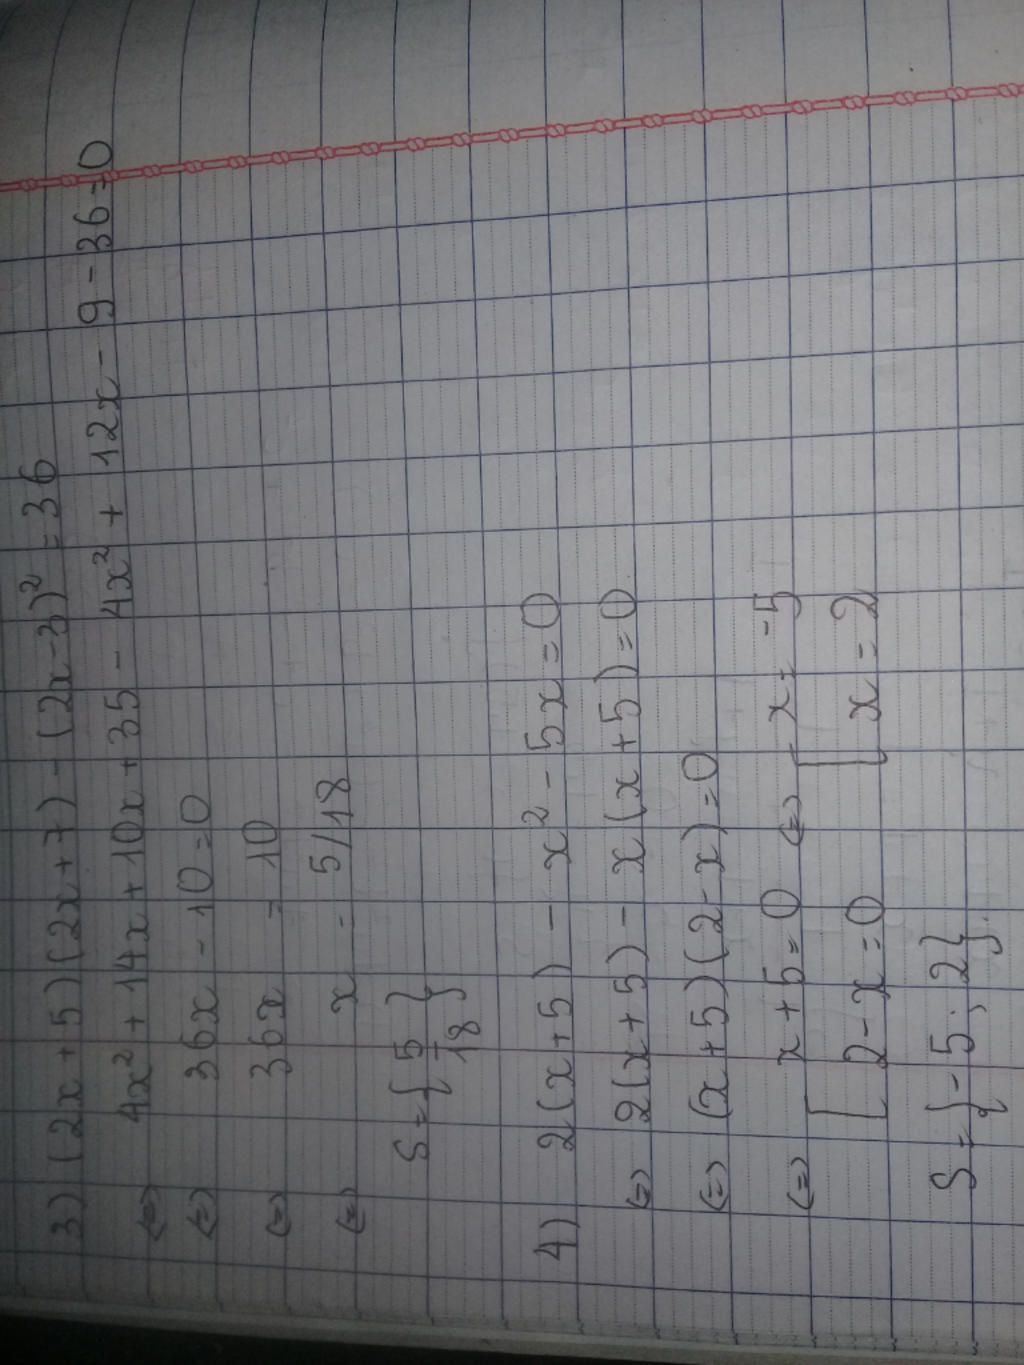 3) (2x + 5)(2x + 7) - (2x - 3)² = 36
<=> 4x² + 14x + 10x + 35 - 4x² + 12x - 9 - 36 = 0
<=> 36x - 10 = 0
<=> 36x = 10
<=> x = 5/18
S = { 5/18 }
4) 2(x + 5) - x² - 5x = 0
<=> 2(x + 5) - x(x + 5) = 0
<=> (x + 5)(2 - x) = 0
<=> [ x + 5 = 0 <=> [ x = -5
[ 2 - x = 0 [ x = 2
S = { -5; 2 }.